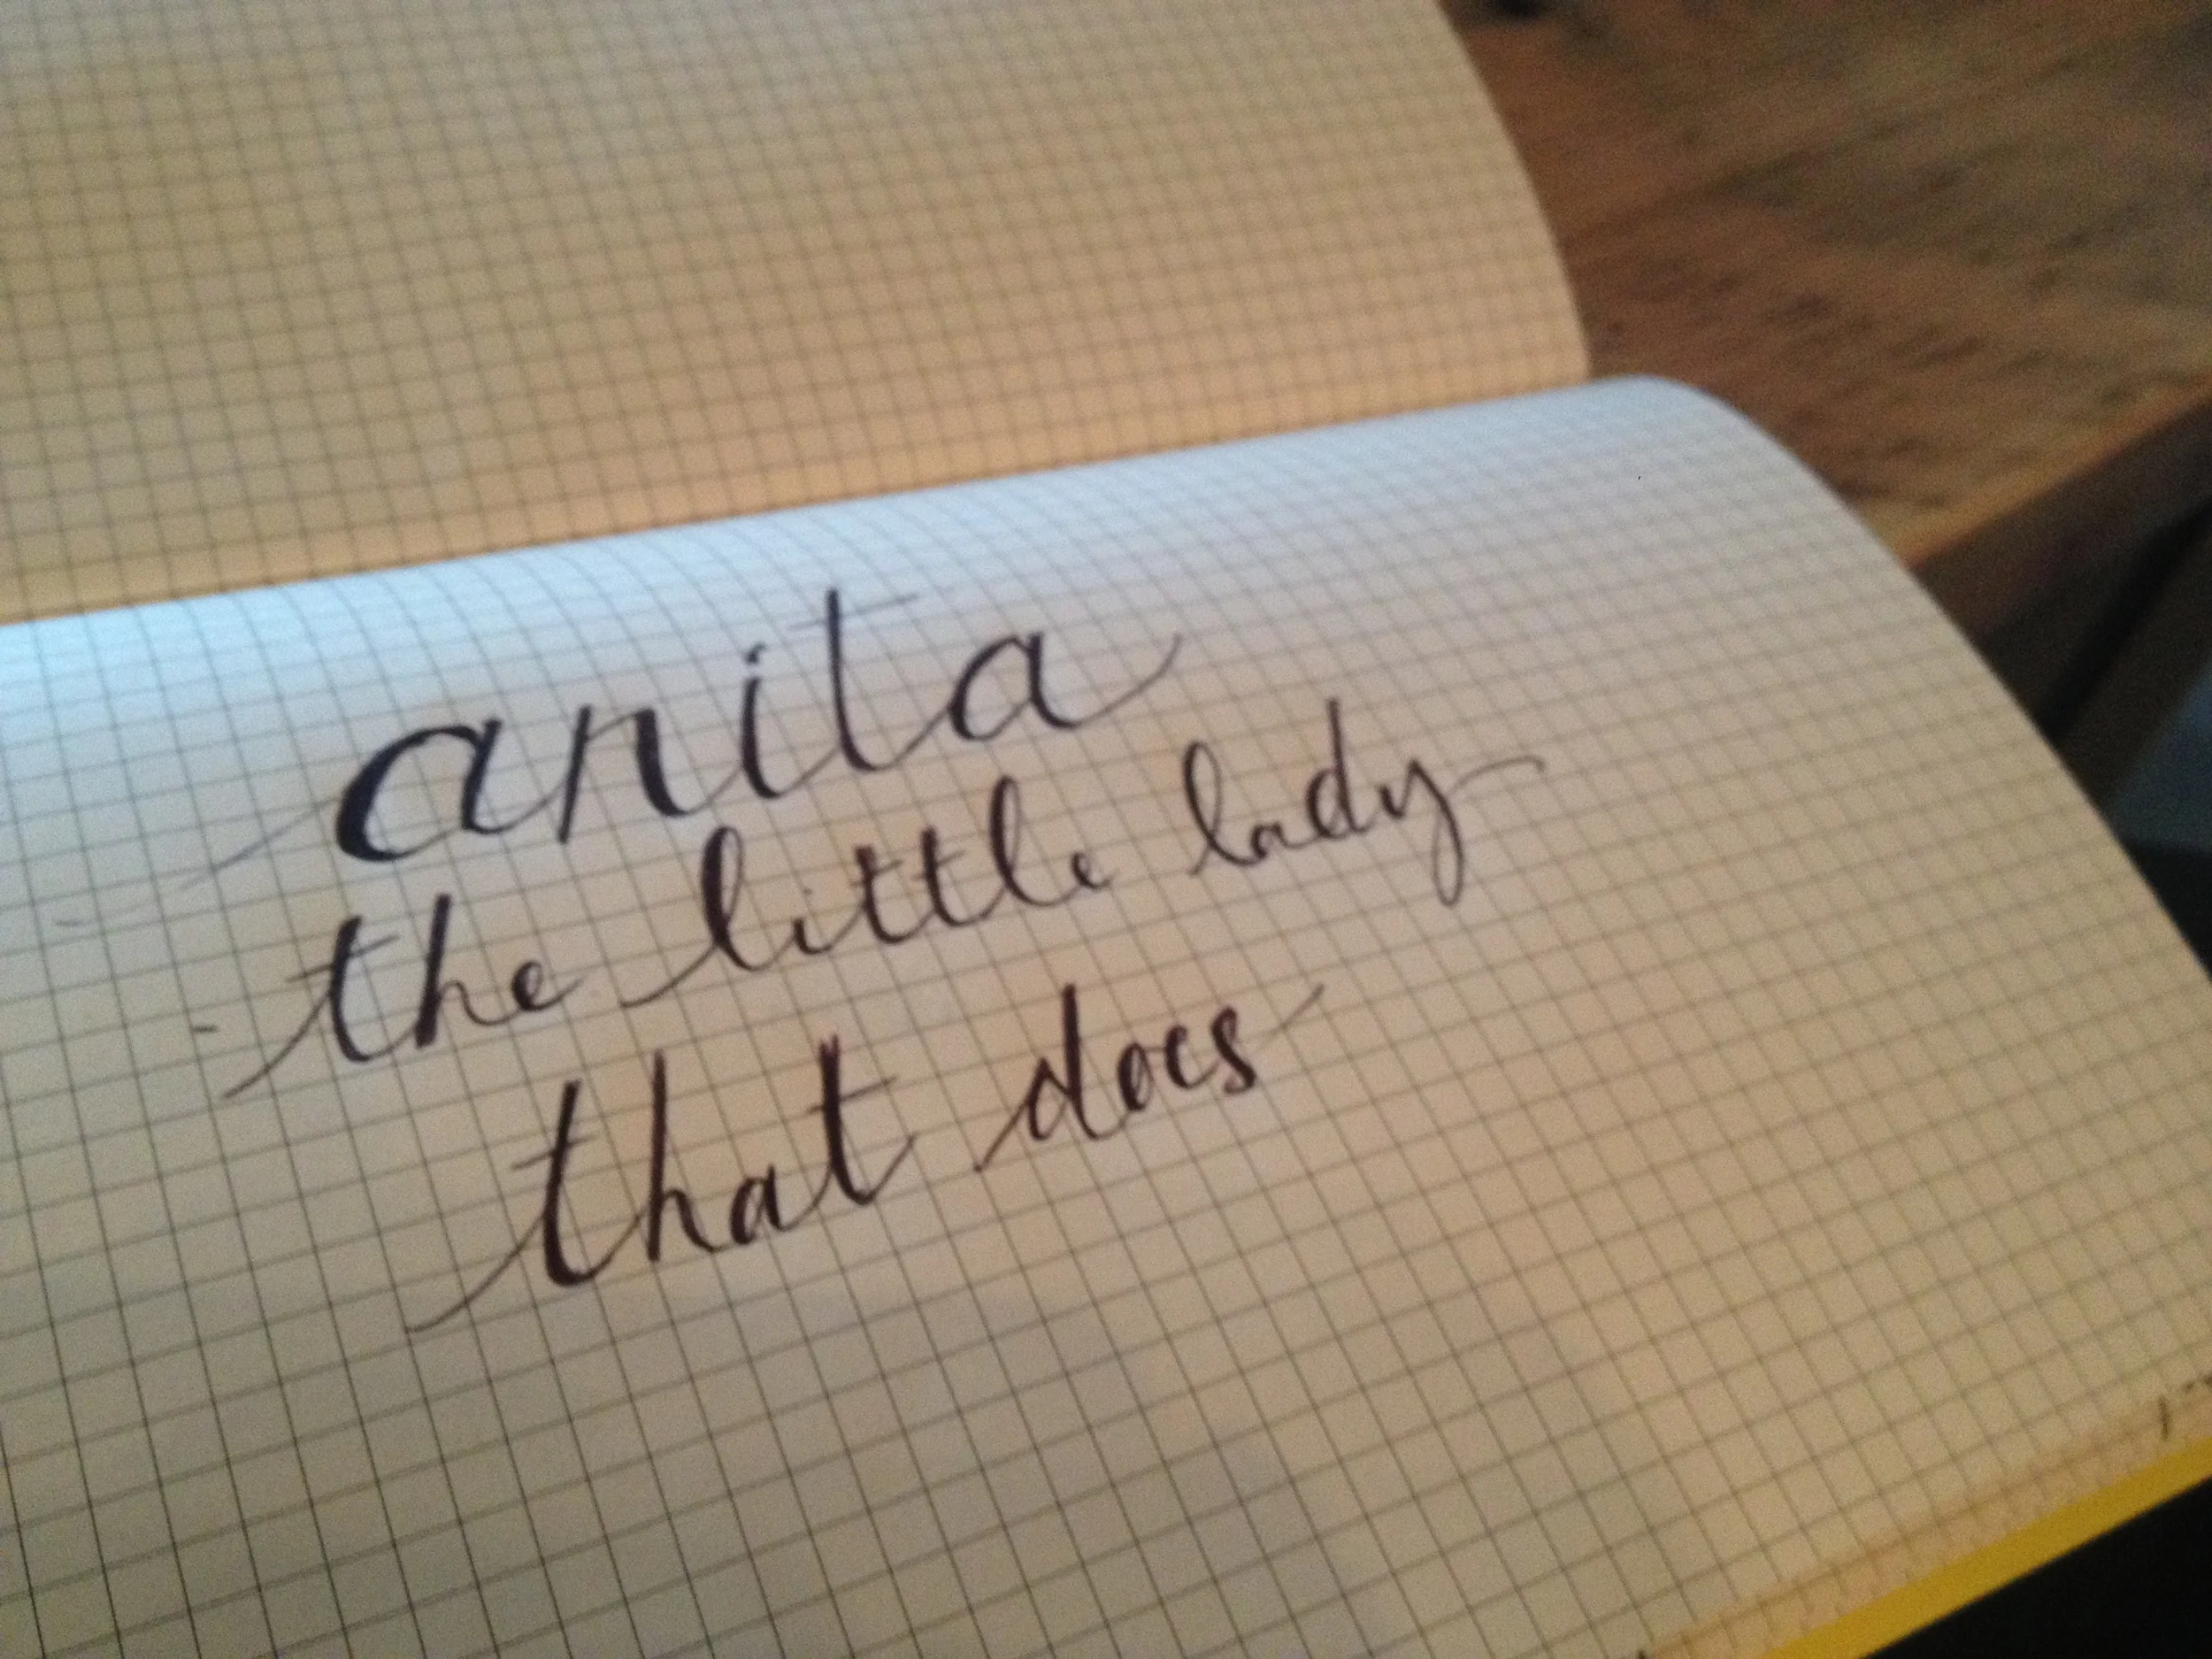 anita
the little lady
that does